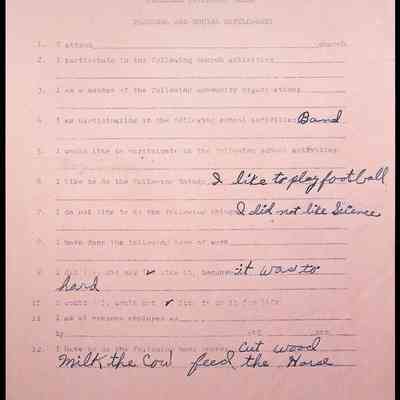 PERSONAL AND SOCIAL DEVELOPMENT
1. I attend church
2. I participate in the following church activities
3. I am a member of the following community organizations
4. I am participating in the following school activities Band
5. I would like to participate in the following school activities
6. I like to do the following things I like to play football
7. I do not like to do the following things I did not like Science
8. I have done the following kind of work
9. I did like it, because it was to
hard
10 I would not like to do it for life
11 I am at present employed as
by of
12. I have to do the following home chores Cut wood
Milk the Cow feed the Horse